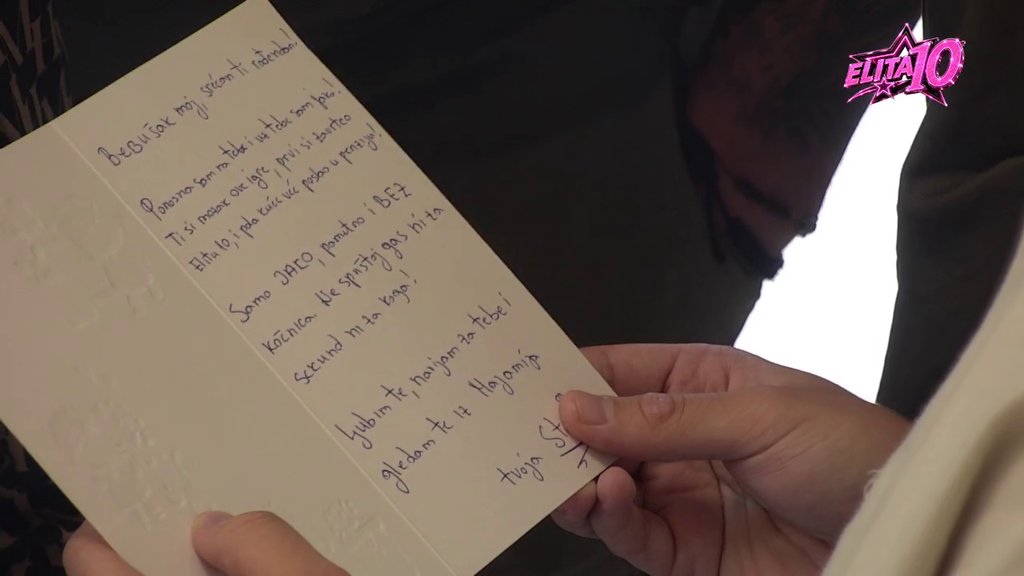 ELITA 10
Bebušak moj, srećan ti rođendan!
Ponosna sam na tebe i uz tebe sam jača!
Ti si mozak ove igre, prvi si
Elitu, i pola kuće već poslao u penziju!
Samo JAKO, pametno i BEZ
kočnica. Ne spuštaj gas ni ta
sekund ni za koga!
ljubim te, navijam za tebe i
gledam te iz
tvoja